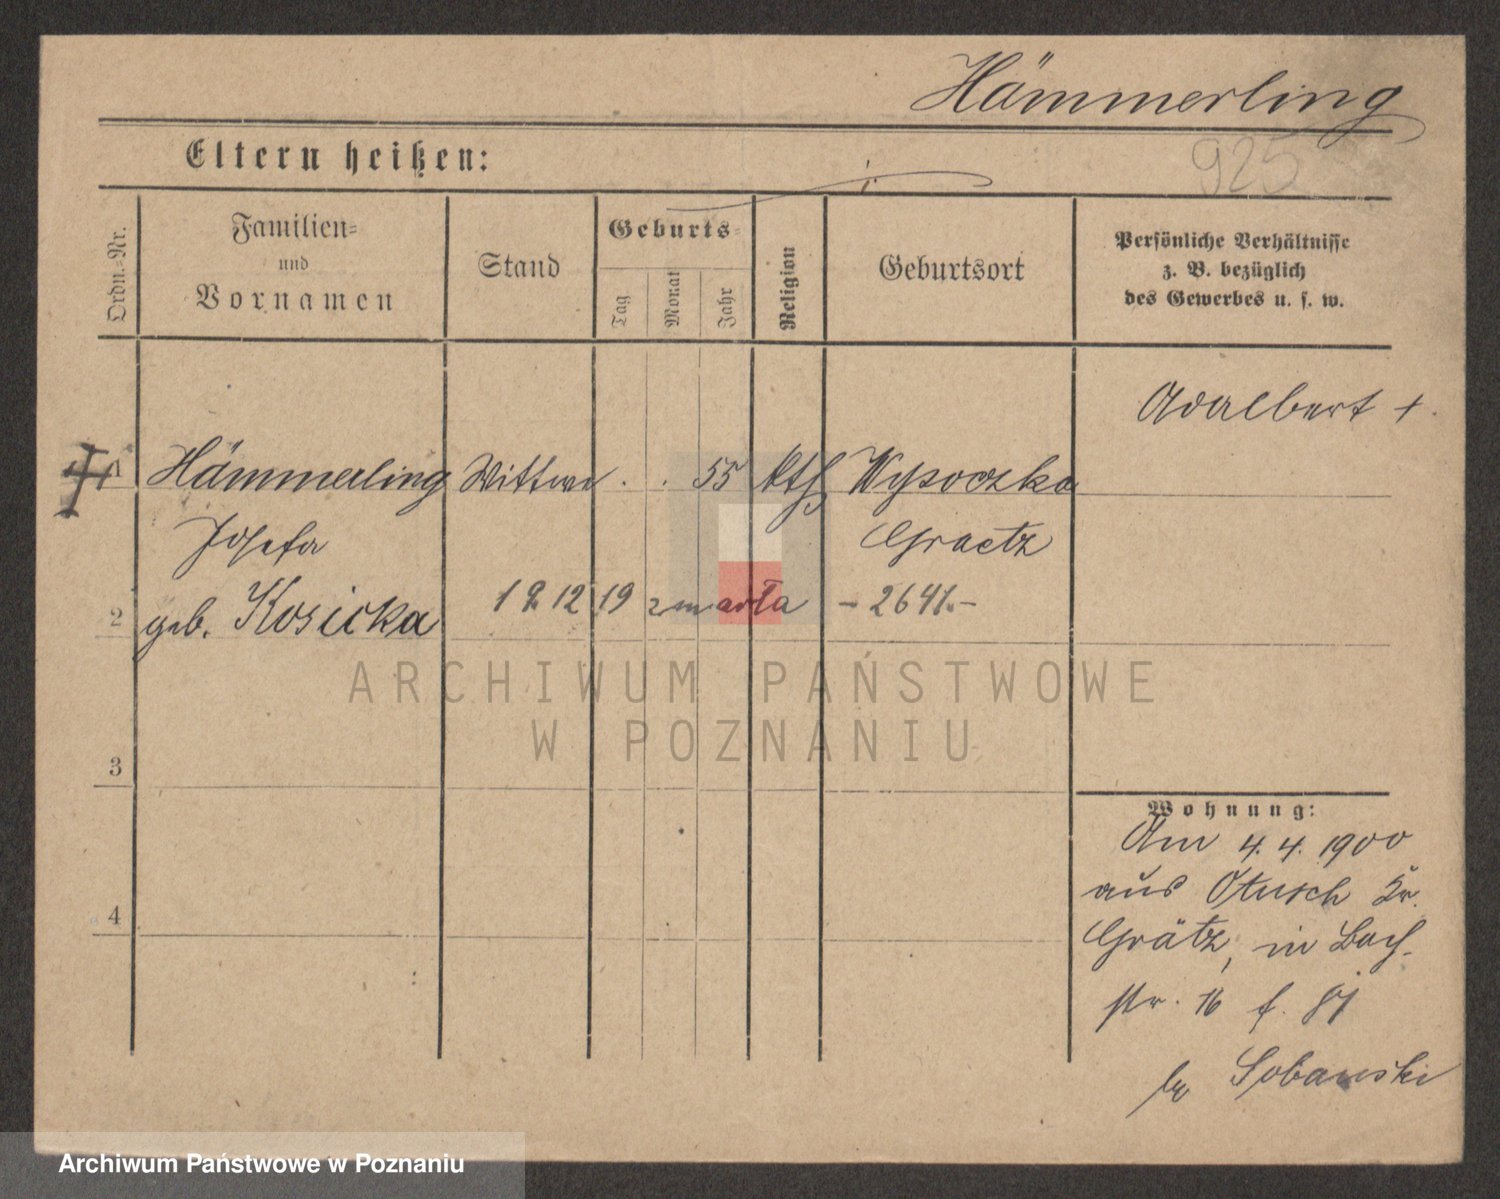 Hämmerling
925
Eltern heißen:
Ordn.-Nr.
Familien-
und
Vornamen
Stand
Geburts-
Tag
Monat
Jahr
Religion
Geburtsort
Persönliche Verhältnisse
z. B. bezüglich
des Gewerbes u. s. w.
Adalbert +.
1 Hämmerling Wittwe . . 55 kth Wysoczka
Josefa Graetz
2 geb. Kosicka 19 12 19 zmarła - 2641. -
ARCHIWUM PAŃSTWOWE
W POZNANIU
3
Wohnung:
Am 4. 4. 1900
aus Otusch Kr.
4
Grätz, in Bach-
str. 16 f. 81
Sobanski
Archiwum Państwowe w Poznaniu